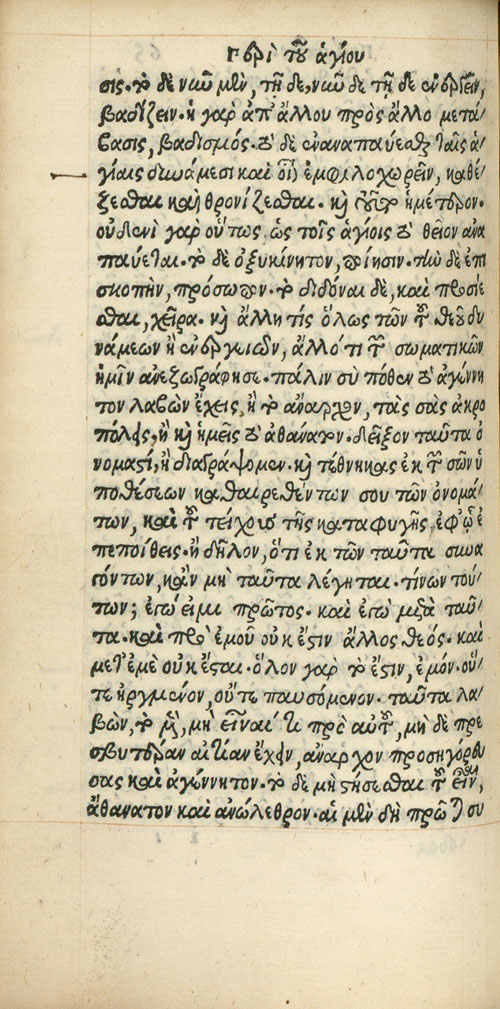 Περὶ τοῦ ἁγίου
σις. τὸ δὲ νῦν μὲν, τῇδε, νῦν δὲ τῇδε ἐνεργεῖν,
βαδίζειν. ἡ γὰρ ἀπ' ἄλλου πρὸς ἄλλο μετά-
βασις, βαδισμός. τὸ δὲ ἐναναπαύεσθαι ταῖς ἁ-
γίαις δυνάμεσι καὶ οἷον ἐμφιλοχωρεῖν, καθέ-
ζεσθαι καὶ θρονίζεσθαι. καὶ τοῦτο ἡμέτερον.
οὐδενὶ γὰρ οὕτως ὡς τοῖς ἁγίοις τὸ θεῖον ἀνα
παύεται. τὸ δὲ ὀξυκίνητον, πτῆσιν. τὴν δὲ ἐπι
σκοπὴν, πρόσωπον. τὸ διδόναι δὲ, καὶ προσίε
σθαι, χεῖρα. καὶ ἄλλη τίς ὅλως τῶν τοῦ θεοῦ δυ
νάμεων ἢ ἐνεργειῶν, ἄλλό τι τῶν σωματικῶν
ἡμῖν ἀνεζωγράφησε. πάλιν σὺ πόθεν τὸ ἀγέννη
τον λαβὼν ἔχεις, ἢ τὸ ἄναρχον, τὰς σὰς ἀκρο
πόλεις, ἢ καὶ ἡμεῖς τὸ ἀθάνατον. δεῖξον ταῦτα ὀ
νομαστί, ἢ διαγράψομεν. καὶ τέθνηκας ἐκ τῶν σῶν ὑ
ποθέσεων καθαιρεθέντων σου τῶν ὀνομά-
των, καὶ τοῦ τείχους τῆς καταφυγῆς, ἐφ' ᾧ ἐ
πεποίθεις. ἢ δῆλον, ὅτι ἐκ τῶν ταῦτα συνα
γόντων, κἂν μὴ ταῦτα λέγηται. τίνων τού-
των; ἐγώ εἰμι πρῶτος. καὶ ἐγὼ μετὰ ταῦ-
τα. καὶ πρὸ ἐμοῦ οὐκ ἔστιν ἄλλος θεός. καὶ
μετ' ἐμὲ οὐκ ἔσται. ὅλον γὰρ τὸ ἔστιν, ἐμόν. οὔ-
τε ἠργμένον, οὔτε παυσόμενον. ταῦτα λα-
βὼν, τὸ μὲν, μὴ εἶναί τι πρὸ αὐτοῦ, μὴ δὲ πρε
σβυτέραν αἰτίαν ἔχειν, ἄναρχον προσηγόρευ
σας καὶ ἀγέννητον. τὸ δὲ μὴ στήσεσθαι τοῦ εἶναι,
ἀθάνατον καὶ ἀνώλεθρον. αἱ μὲν δὴ πρῶται συ